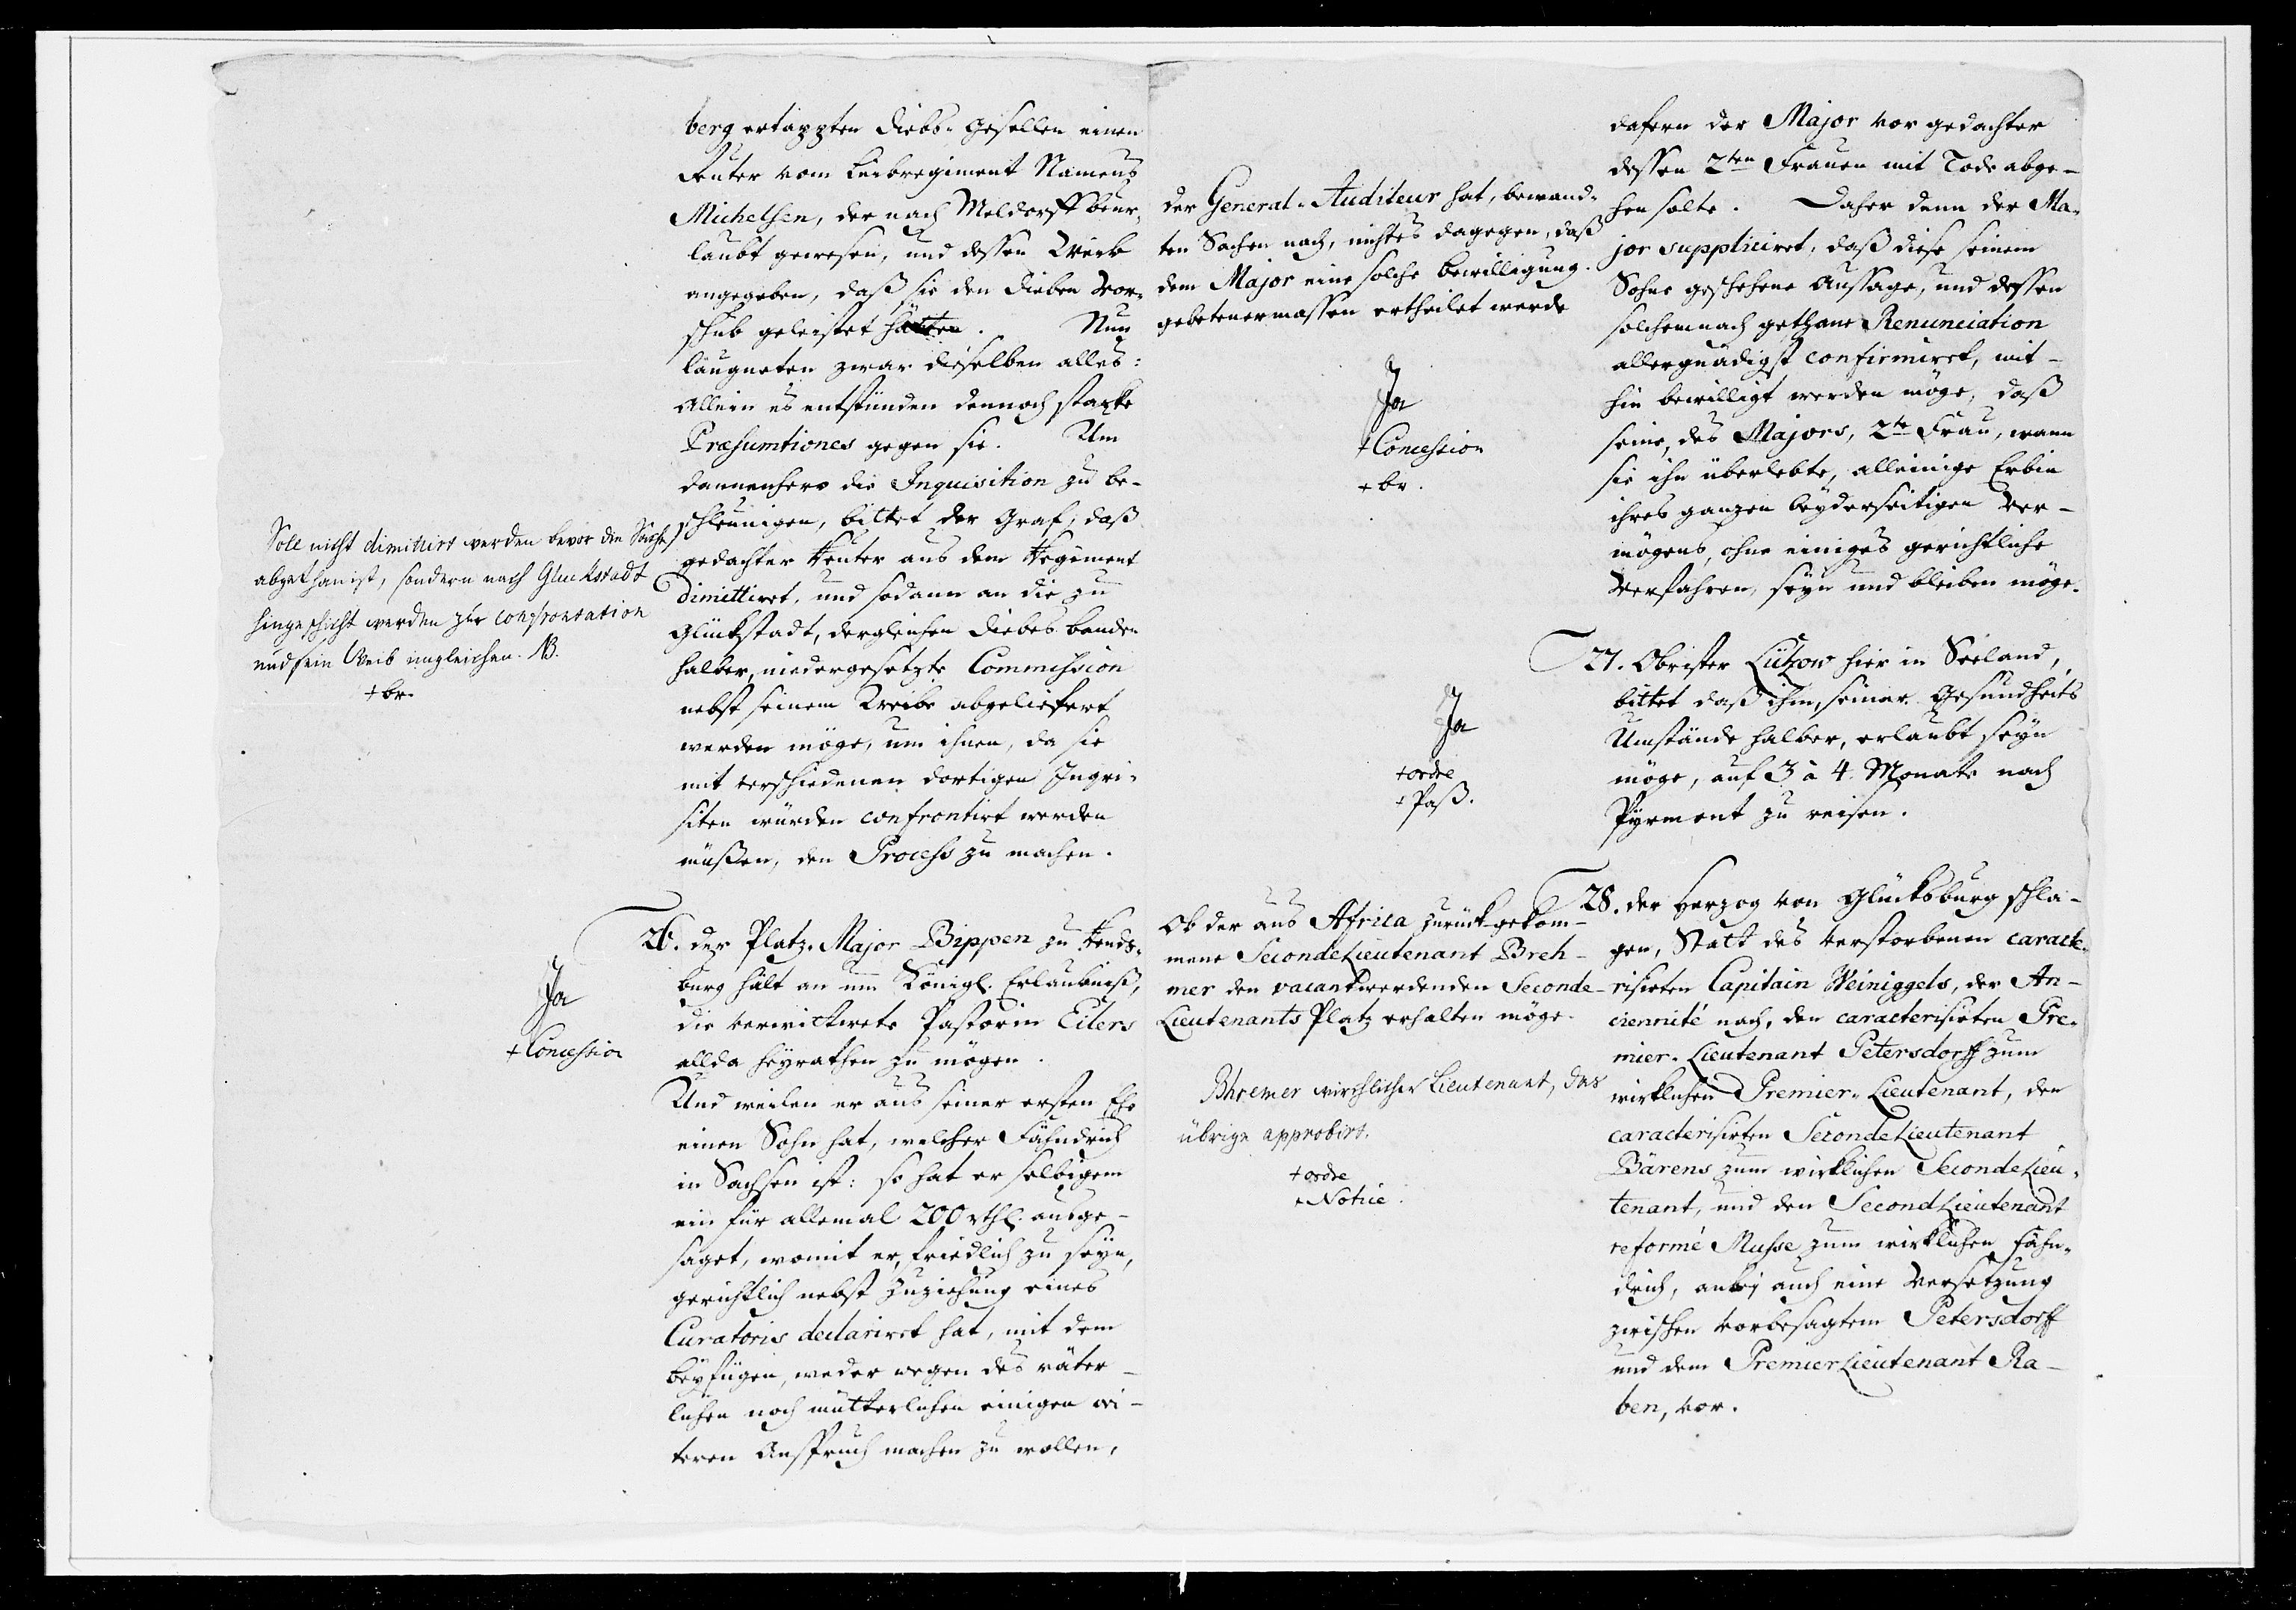 berg ertappten Diebs-Gesellen einen
Reuter vom Leibregiment Namens
Michelsen, der nach Meldorff beur-
laubt gewesen, und dessen Weib
angegeben, daß sie den Dieben Vor-
schub geleistet hätten. Nun
läugneten zwar dieselben alles:
Allein es entstünden dennoch starke
Præsumtiones gegen sie. Um
dannenhero die Inquisition zu be-
schleunigen, bittet der Graf, daß
gedachter Reuter aus dem Regiment
dimittiret, und sodann an die zu
Glückstadt, dergleichen Diebes banden
halber, niedergesetzte Commission
nebst seinem Weibe abgeliefert
werden möge, um ihnen, da sie
mit verschiedenen dortigen Inqui-
siten würden confrontirt werden
müßen, den Process zu machen.
Soll nicht dimittirt werden bevor die Sache
abgethan ist, sondern nach Gluckstadt
hingeschickt werden zur confrontation
und sein Weib imgleichen. NB.
+ br.
26. der Platz-Major Bippen zu Rends-
burg hält an um Königl. Erlaubniß,
die verwittwete Pastorin Eilers
allda heyrathen zu mögen.
Und weilen er aus seiner ersten Ehe
einen Sohn hat, welcher Fähndrich
in Sachsen ist: so hat er selbigem
ein für allemal 200 rthl. ausge-
saget, womit er, friedlich zu seyn,
gerichtlich nebst Zuziehung eines
Curatoris declariret hat, mit dem
beyfügen, weder wegen des väter-
lichen noch mütterlichen einigen wei-
teren Anspruch machen zu wollen,
Ja
+ Concession
dafern der Major vor gedachter
dessen 2ten Frauen mit Tode abge-
hen solte. Daher denn der Ma-
jor suppliciret, daß diese seinem
Sohne geschehene Aussage, und dessen
solchemnach gethane Renunciation
allergnädigst confirmiret, mit-
hin bewilligt werden möge, daß
seine, des Majors, 2te Frau, wann
sie ihn überlebte, alleinige Erbin
ihres ganzen beyderseitigen Ver-
mögens, ohne einiges gerichtliche
Verfahren, seyn und bleiben möge.
der General-Auditeur hat, bewand-
ten Sachen nach, nichts dagegen, daß
dem Major eine solche Bewilligung
gebetenermassen ertheilet werde
Ja
+ Concession
+ br.
27. Obrister Lützow hier in Seeland,
bittet daß ihm, seiner Gesundheits
Umstände halber, erlaubt seyn
möge, auf 3 à 4 Monate nach
Pyrmont zu reisen.
Ja
+ ordre
+ Paß.
28. der Herzog von Glücksburg schla-
gen, Statt des verstorbenen caracte-
risirten Capitain Weiniggels, der An-
ciennité nach, den caracterisirten Pre-
mier-Lieutenant Petersdorff zum
wirklichen Premier-Lieutenant, den
caracterisirten SecondeLieutenant
Bärens zum wirklichen SecondeLieu-
tenant, und den SecondLieutenant
reformé Musse zum wirklichen Fähn-
drich, anbey auch eine Versetzung
zwischen vorbesagtem Petersdorff
und dem PremierLieutenant Ra-
ben, vor.
Ob der aus Africa zurück gekom-
mene SecondeLieutenant Breh-
mer den vacantwerdenden Seconde-
Lieutenants Platz erhalten möge.
Bhremer wircklicher Lieutenant, das
übrige approbirt.
+ ordre
+ Notice.